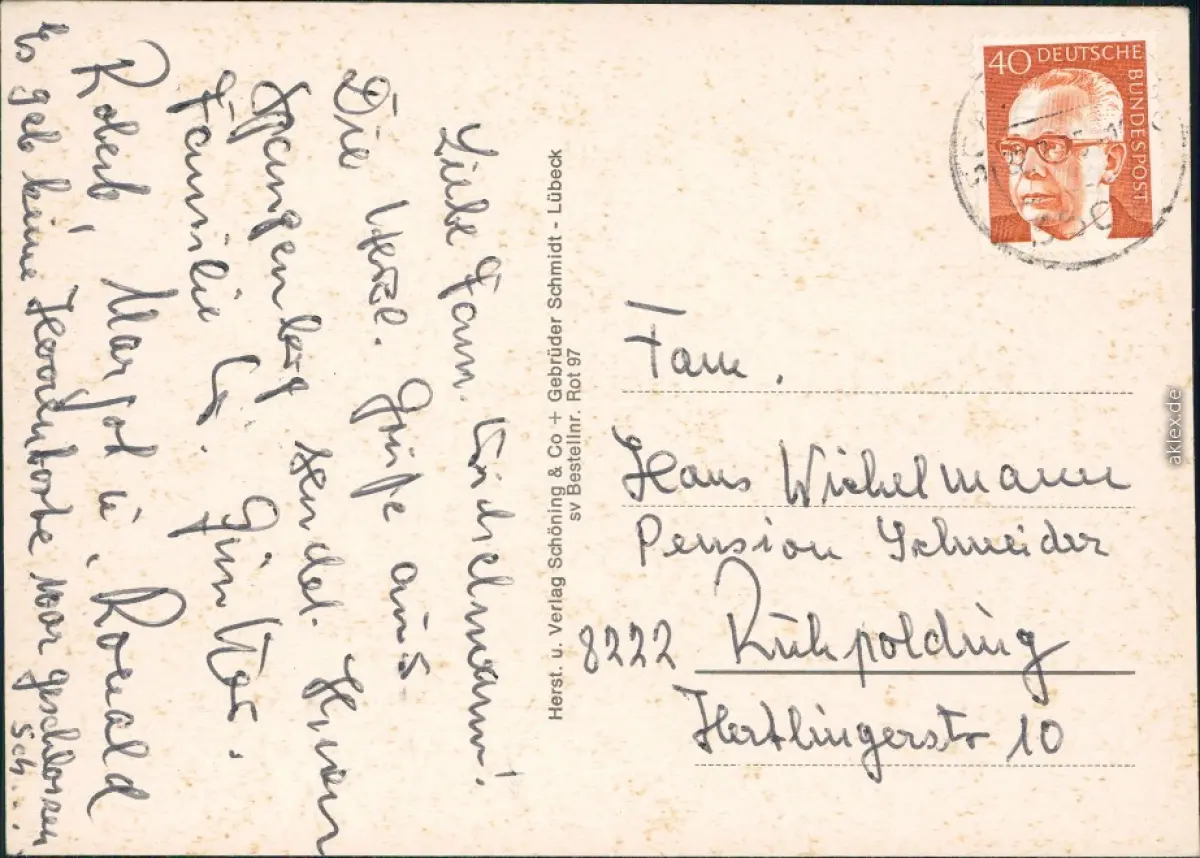 Liebe Fam. Wichelmann!
Die herzl. Grüße aus
Spangenberg sendet Ihnen
Familie G. Günther.
Robert, Margot u. Ronald
Es gab keine Karte war geschlossen
Sch...
Herst. u. Verlag Schöning & Co + Gebrüder Schmidt - Lübeck
sv Bestellnr. Rot 97
40 DEUTSCHE BUNDESPOST
Fam.
Hans Wichelmann
Pension Schneider
8222 Ruhpolding
Hertlingerstr 10
aklex.de